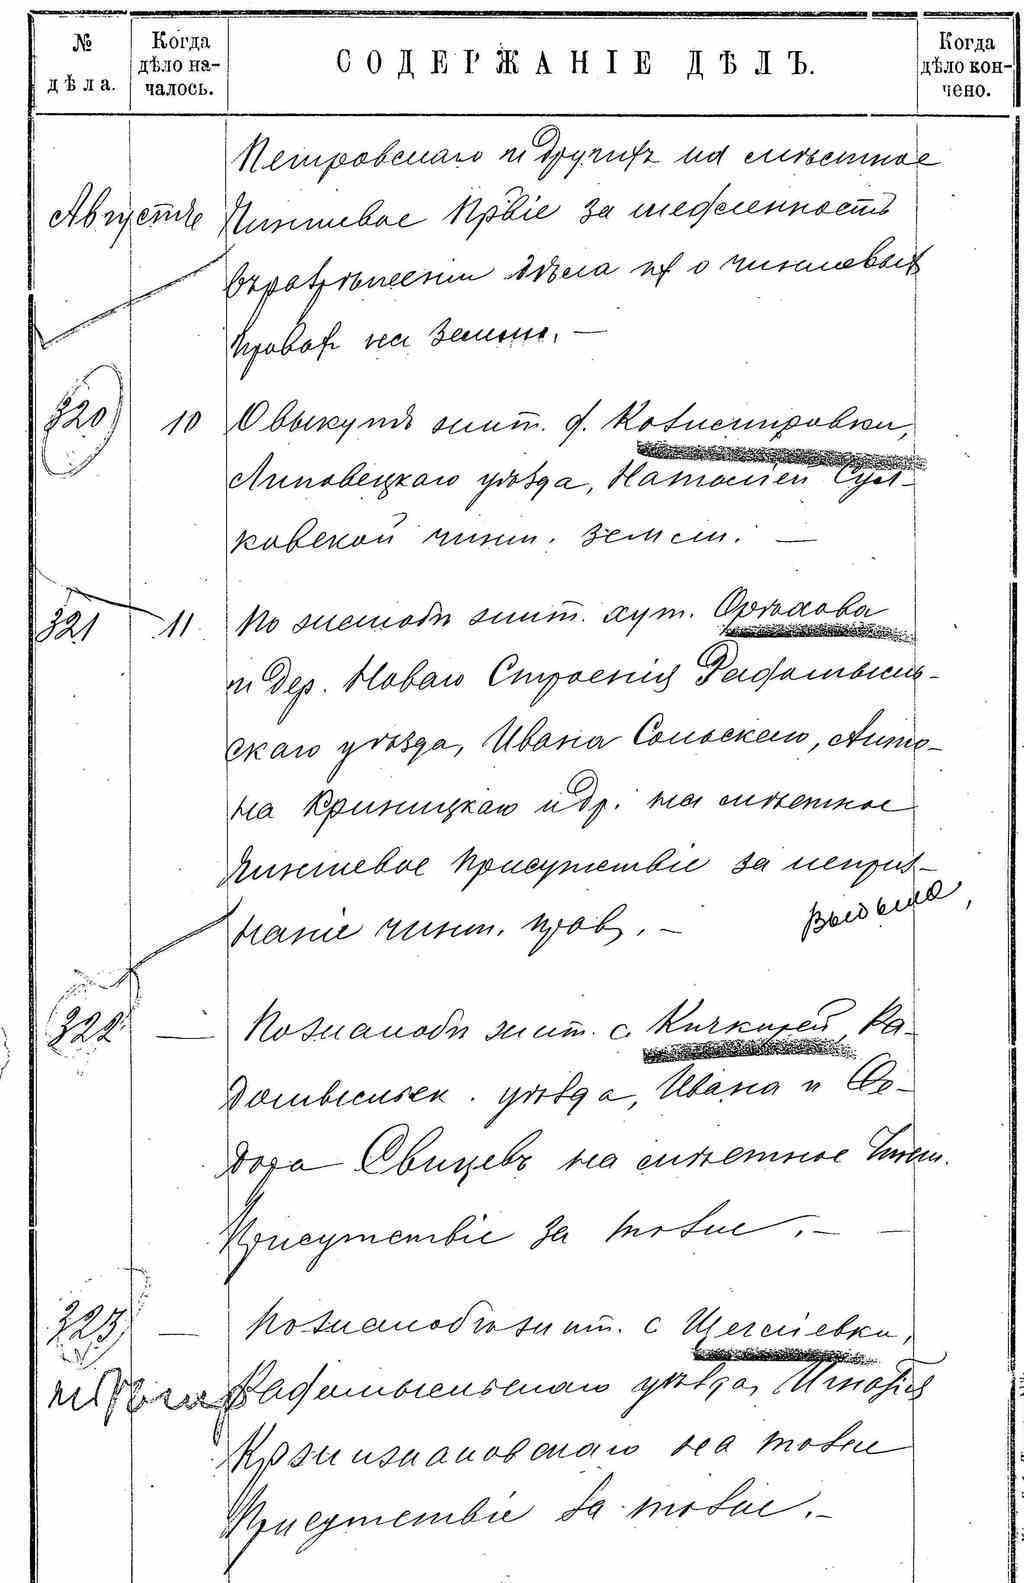 № дѣла.
Когда дѣло началось.
СОДЕРЖАНІЕ ДѢЛЪ.
Когда дѣло кончено.
Петровскаго и другихъ на мѣстное
Августъ
Чиншевое Пр҃віе за медленность
въ разрѣшеніи дѣла их о чиншевыхъ
правахъ на землю. —
320 10 О выкупѣ жит. д. Казимировки,
Липовецкаго уѣзда, Наталіей Сул-
ковской чинш. земли. —
321 11 По жалобѣ жит. хут. Орѣхова
и дер. Новаго Строенія Радомысль-
скаго уѣзда, Ивана Сольскаго, Анто-
на Криницкаго и др. на мѣстное
Чиншевое Присутствіе за неприз-
наніе чинш. прав. —
322 — По жалобѣ жит. с. Кичкирей, Ра-
домысльск. уѣзда, Ивана и Ѳе-
дора на мѣстное Чинш.
Присутствіе за тоже. — —
323 — По жалобѣ жит. с
Радомысльскаго уѣзда, Игнатія
Кржижановскаго на тоже
Присутствіе за тоже. —